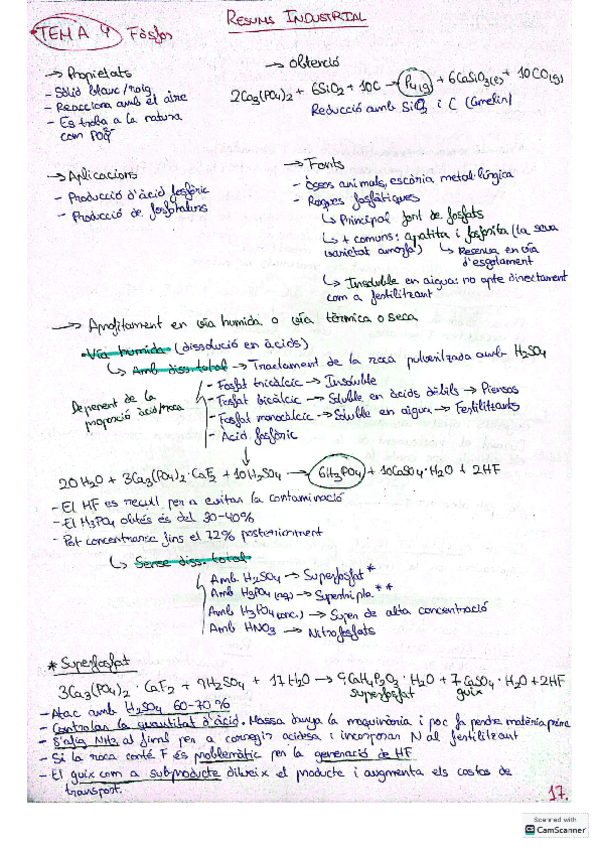 RESUMS INDUSTRIAL
TEMA 4 Fòsfor
→ Propietats
- Sòlid blanc/roig
- Reacciona amb el aire
- Es troba a la natura
com PO₄³⁻
→ Obtenció
2Ca₃(PO₄)₂ + 6SiO₂ + 10C → P₄(g) + 6CaSiO₃(s) + 10CO(g)
Reducció amb SiO₂ i C (Gmelin)
→ Aplicacions
- Producció d'àcid fosfòric
- Producció de
→ Fonts
- Óssos animals, escòria metal·lúrgica
- Roques fosfàtiques
↳ Principal font de fosfats
↳ + comuns: apatita i fosforita (la seva
varietat amorfa) ↳ Reserva en via
d'esgotament
↳ Insoluble en aigua: no apte directament
com a fertilitzant
→ Aprofitament en via humida o via tèrmica o seca
• Via humida (dissolució en àcids)
↳ Amb diss. total → Tractament de la roca pulveritzada amb H₂SO₄
Depenent de la
proporció àcid/roca
- Fosfat tricàlcic → Insoluble
- Fosfat bicàlcic → Soluble en àcids dèbils → Piensos
- Fosfat monocàlcic → Soluble en aigua → Fertilitzants
- Àcid fosfòric
20H₂O + 3Ca₃(PO₄)₂·CaF₂ + 10H₂SO₄ → 6H₃PO₄ + 10CaSO₄·H₂O + 2HF
- El HF es recull per a evitar la contaminació
- El H₃PO₄ obtés és del 30-40%
- Pot concentrarse fins el 72% posteriorment
↳ Sense diss. total
Amb H₂SO₄ → Superfosfat *
Amb H₃PO₄ (aq.) → Supertriple **
Amb H₃PO₄ (conc.) → Super de alta concentració
Amb HNO₃ → Nitrofosfats
* Superfosfat
3Ca₃(PO₄)₂ · CaF₂ + 7H₂SO₄ + 17H₂O → CaH₄P₂O₃ · H₂O + 7CaSO₄ · H₂O + 2HF
superfosfat guix
- Atac amb H₂SO₄ 60-70%
- Controlar la quantitat d'àcid. Massa danya la maquinària i poc fa perdre matèria prima
- S'afig NH₃ al final per a corregir acidesa i incorporar N al fertilitzant
- Si la roca conté F és problemàtic per la generació de HF
- El guix com a subproducte dilueix el producte i augmenta els costos de
transport.
17.
Scanned with
CamScanner